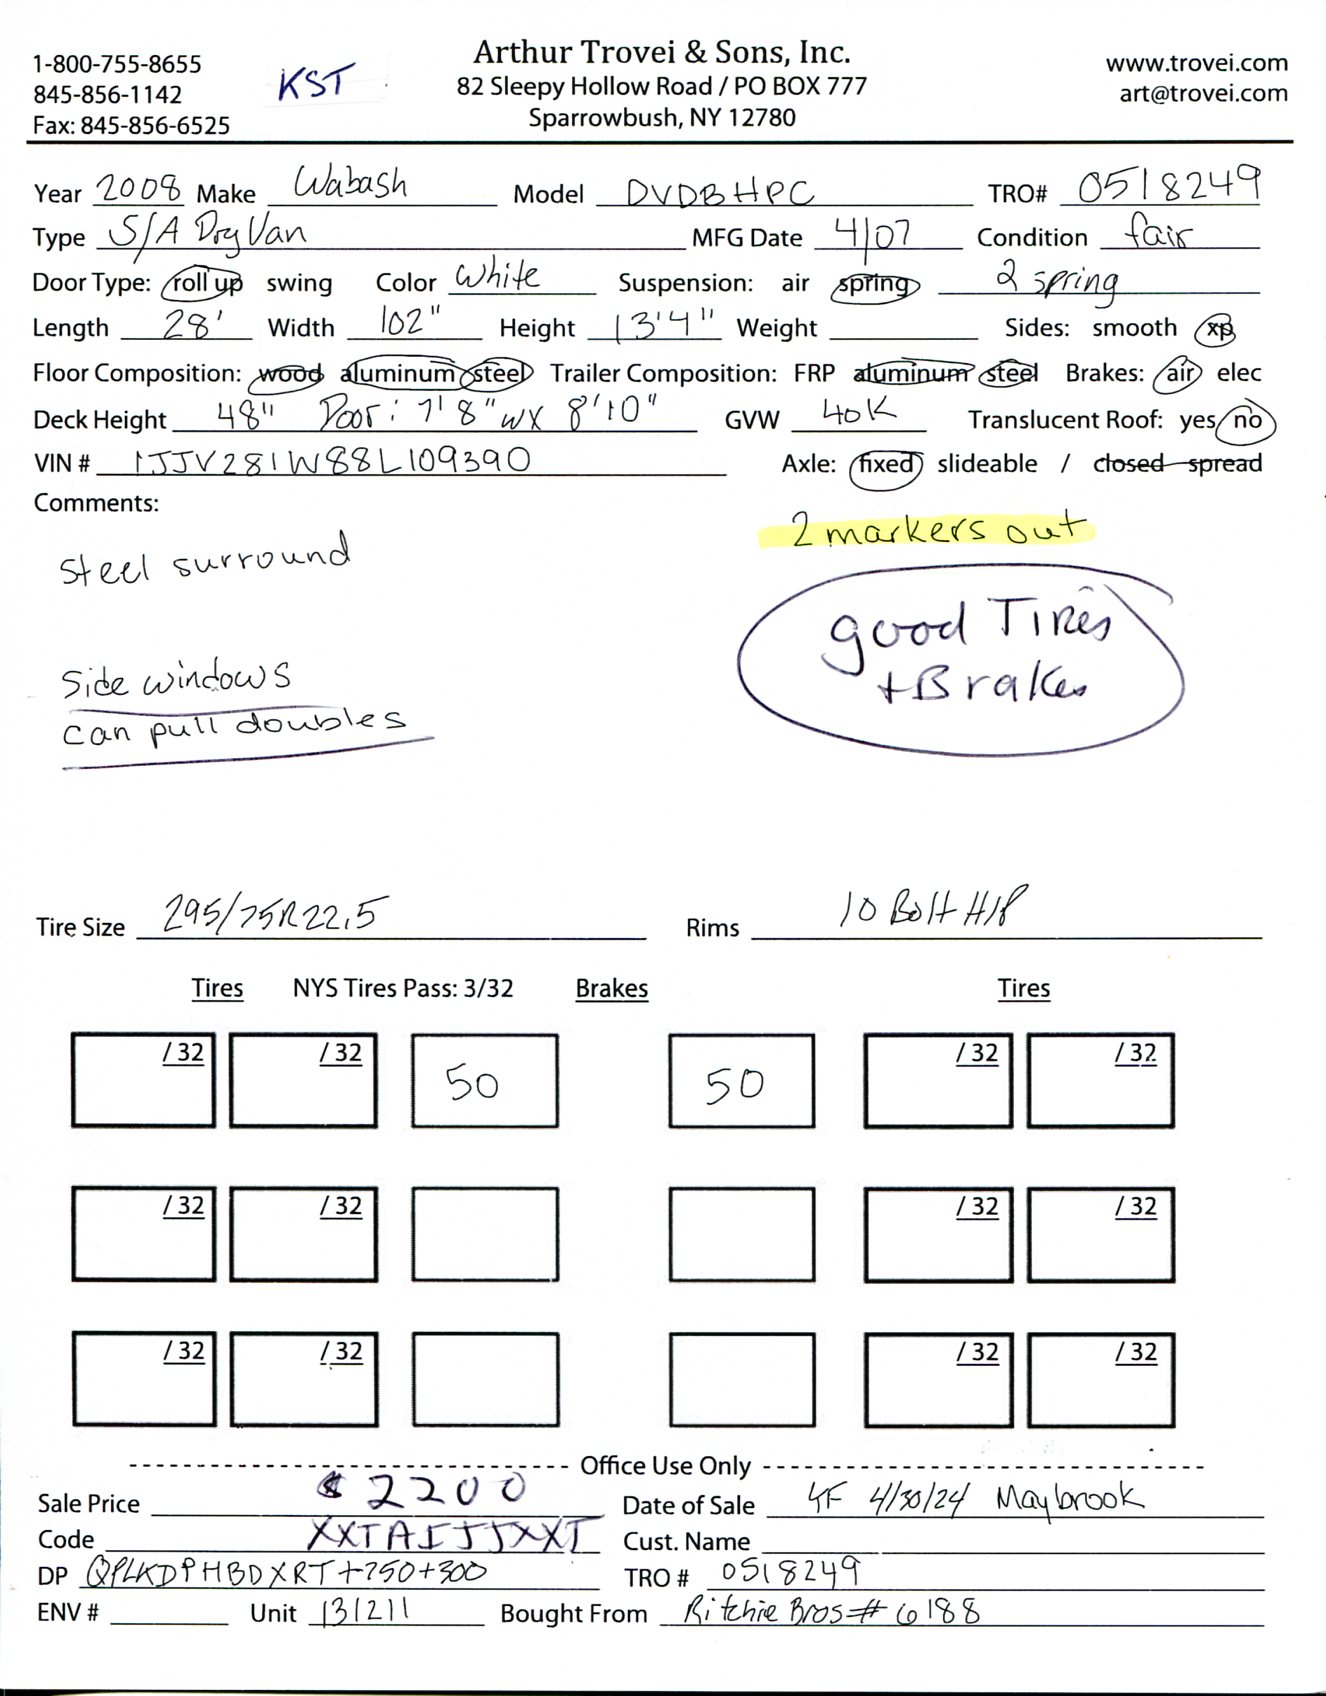 1-800-755-8655
845-856-1142
Fax: 845-856-6525
KST
Arthur Trovei & Sons, Inc.
82 Sleepy Hollow Road / PO BOX 777
Sparrowbush, NY 12780
www.trovei.com
art@trovei.com
Year 2008 Make Wabash Model DVDBHPC TRO# 0518249
Type S/A Dry Van MFG Date 4/07 Condition fair
Door Type: roll up swing Color White Suspension: air spring 2 spring
Length 28' Width 102" Height 13'4" Weight Sides: smooth xp
Floor Composition: wood aluminum steel Trailer Composition: FRP aluminum steel Brakes: air elec
Deck Height 48" Door: 7'8"w x 8'10" GVW 40K Translucent Roof: yes no
VIN # 1JJV281W88L109390 Axle: fixed slideable / closed spread
Comments:
2 markers out
steel surround
good Tires
+ Brakes
Side windows
can pull doubles
Tire Size 295/75R22.5 Rims 10 Bolt H/P
Tires NYS Tires Pass: 3/32 Brakes Tires
/32 /32 50 50 /32 /32
/32 /32 /32 /32
/32 /32 /32 /32
Office Use Only
Sale Price $2200 Date of Sale 4/30/24 Maybrook
Code Cust. Name
DP QPLKDPHBDXRT+750+300 TRO # 0518249
ENV # Unit 131211 Bought From Ritchie Bros # 6188